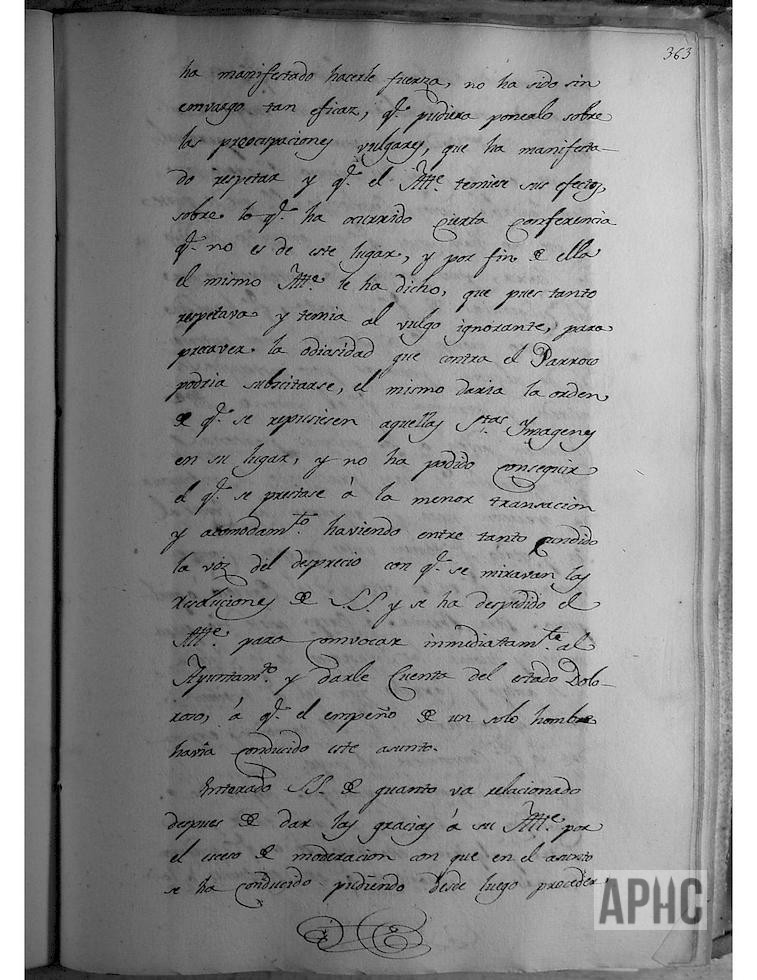 363
ha manifestado hacerle fuerza, no ha sido sin
embargo tan eficaz, qe. pudiera ponerlo sobre
las preocupaciones vulgares, que ha manifesta-
do respetar y qe. el Alte. temiese sus efectos,
sobre lo qe. ha ocurrido cierta conferencia
qe. no es de este lugar, y por fin de ella
el mismo Alte. le ha dicho, que pues tanto
respetava y temia al vulgo ignorante, para
precaver la odiosidad que contra el Parroco
podria subscitarse, el mismo daria la orden
de qe. se repusiesen aquellas Stas. Imagenes
en su lugar, y no ha podido conseguir
el qe. se prestase á la menor transacion
y acomodamto. haviendo entre tanto cundido
la voz del desprecio con qe. se miravan las
resoluciones de SS. y se ha despedido el
Alte. para convocar inmediatamte. al
Ayuntamto. y darle Cuenta del estado Dolo-
roso, á qe. el empeño de un solo hombre
havia conducido este asunto.
Enterado SS. de quanto va relacionado
despues de dar las gracias á su Alte. por
el exceso de moderacion con que en el asunto
se ha conducido pudiendo desde luego proceder
APHC